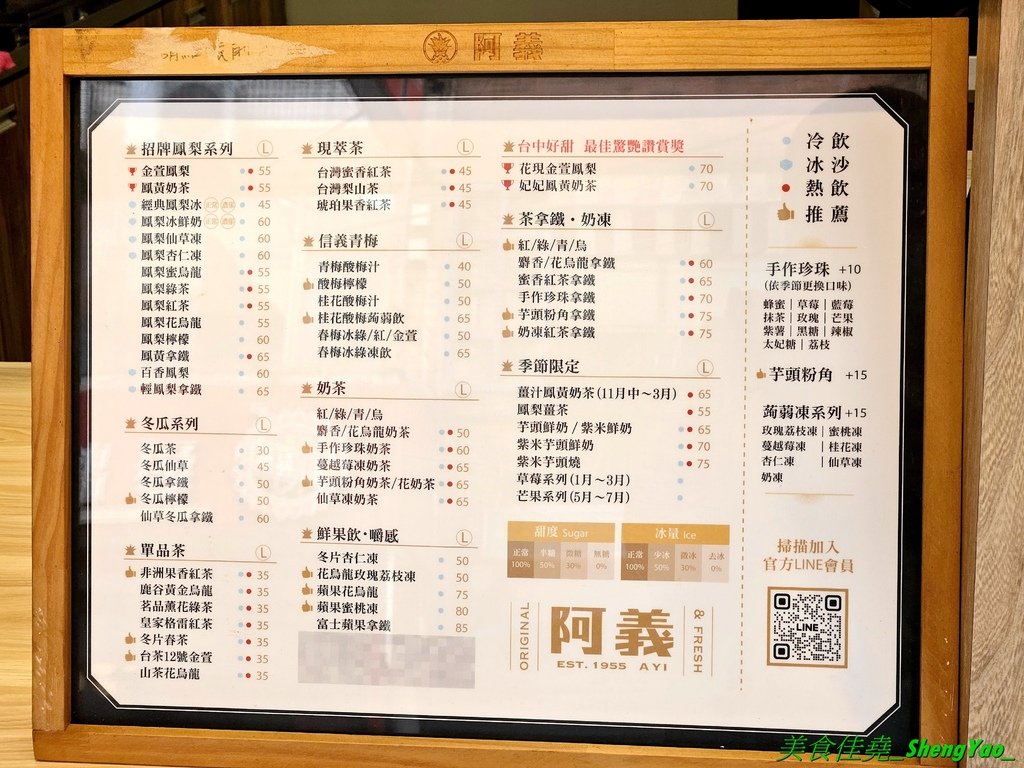 阿義
招牌鳳梨系列 L
金萱鳳梨 55
鳳黃奶茶 55
經典鳳梨冰 45
鳳梨冰鮮奶 60
鳳梨仙草凍 60
鳳梨杏仁凍 60
鳳梨蜜烏龍 55
鳳梨綠茶 55
鳳梨紅茶 55
鳳梨花烏龍 55
鳳梨檸檬 60
鳳黃拿鐵 65
百香鳳梨 60
輕鳳梨拿鐵 65
冬瓜系列 L
冬瓜茶 30
冬瓜仙草 45
冬瓜拿鐵 50
冬瓜檸檬 50
仙草冬瓜拿鐵 60
單品茶 L
非洲果香紅茶 35
鹿谷黃金烏龍 35
茗品薰花綠茶 35
皇家格雷紅茶 35
冬片春茶 35
台茶12號金萱 35
山茶花烏龍 35
現萃茶 L
台灣蜜香紅茶 45
台灣梨山茶 45
琥珀果香紅茶 45
信義青梅 L
青梅酸梅汁 40
酸梅檸檬 50
桂花酸梅汁 50
桂花酸梅蒟蒻飲 65
春梅冰綠/紅/金萱 50
春梅冰綠凍飲 65
奶茶 L
紅/綠/青/烏
麝香/花烏龍奶茶 50
手作珍珠奶茶 60
蔓越莓凍奶茶 65
芋頭粉角奶茶/花奶茶 65
仙草凍奶茶 65
鮮果飲·嚼感 L
冬片杏仁凍 50
花烏龍玫瑰荔枝凍 50
蘋果花烏龍 75
蘋果蜜桃凍 80
富士蘋果拿鐵 85
台中好甜 最佳驚艷讚賞獎
花現金萱鳳梨 70
妃妃鳳黃奶茶 70
茶拿鐵·奶凍 L
紅/綠/青/烏
麝香/花烏龍拿鐵 60
蜜香紅茶拿鐵 65
手作珍珠拿鐵 70
芋頭粉角拿鐵 75
奶凍紅茶拿鐵 75
季節限定 L
薑汁鳳黃奶茶(11月中～3月) 65
鳳梨薑茶 55
芋頭鮮奶/紫米鮮奶 65
紫米芋頭鮮奶 70
紫米芋頭燒 75
草莓系列(1月～3月)
芒果系列(5月～7月)
甜度 Sugar
正常 半糖 微糖 無糖
100% 50% 30% 0%
冰量 Ice
正常 少冰 微冰 去冰
100% 50% 30% 0%
ORIGINAL
阿義
EST. 1955 AYI
& FRESH
冷飲
冰沙
熱飲
推薦
手作珍珠 +10
(依季節更換口味)
蜂蜜｜草莓｜藍莓
抹茶｜玫瑰｜芒果
紫薯｜黑糖｜辣椒
太妃糖｜荔枝
芋頭粉角 +15
蒟蒻凍系列 +15
玫瑰荔枝凍｜蜜桃凍
蔓越莓凍｜桂花凍
杏仁凍｜仙草凍
奶凍
掃描加入
官方LINE會員
LINE
美食佳堯_ShengYao_